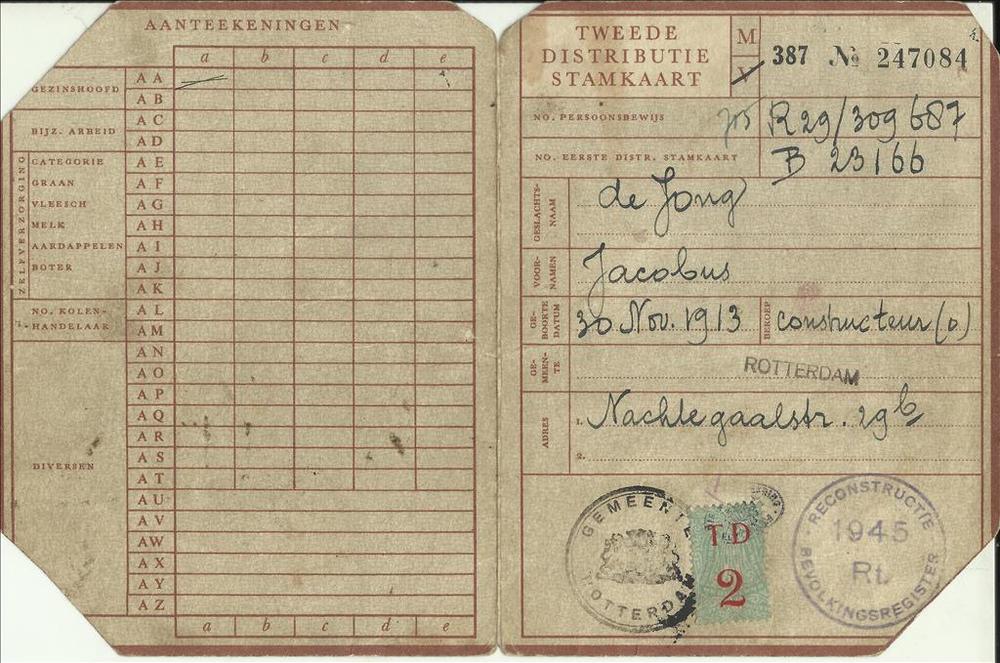 AANTEEKENINGEN
a b c d e
GEZINSHOOFD
AA
AB
BIJZ. ARBEID
AC
AD
ZELFVERZORGING
CATEGORIE AE
GRAAN AF
VLEESCH AG
MELK AH
AARDAPPELEN AI
BOTER AJ
AK
NO. KOLEN-
HANDELAAR
AL
AM
AN
AO
AP
AQ
AR
DIVERSEN
AS
AT
AU
AV
AW
AX
AY
AZ
a b c d e
TWEEDE
DISTRIBUTIE
STAMKAART
M
V
387 № 247084
NO. PERSOONSBEWIJS R29/309687
NO. EERSTE DISTR. STAMKAART B 23166
GESLACHTS-
NAAM
de Jong
VOOR-
NAMEN
Jacobus
GE-
BOORTE
DATUM
30 Nov. 1913
BEROEP
constructeur (o)
GE-
MEEN-
TE
ROTTERDAM
ADRES
1. Nachtegaalstr. 29b
2.
GEMEENTE
ROTTERDAM
TD
2
RECONSTRUCTIE
1945
Rt.
BEVOLKINGSREGISTER